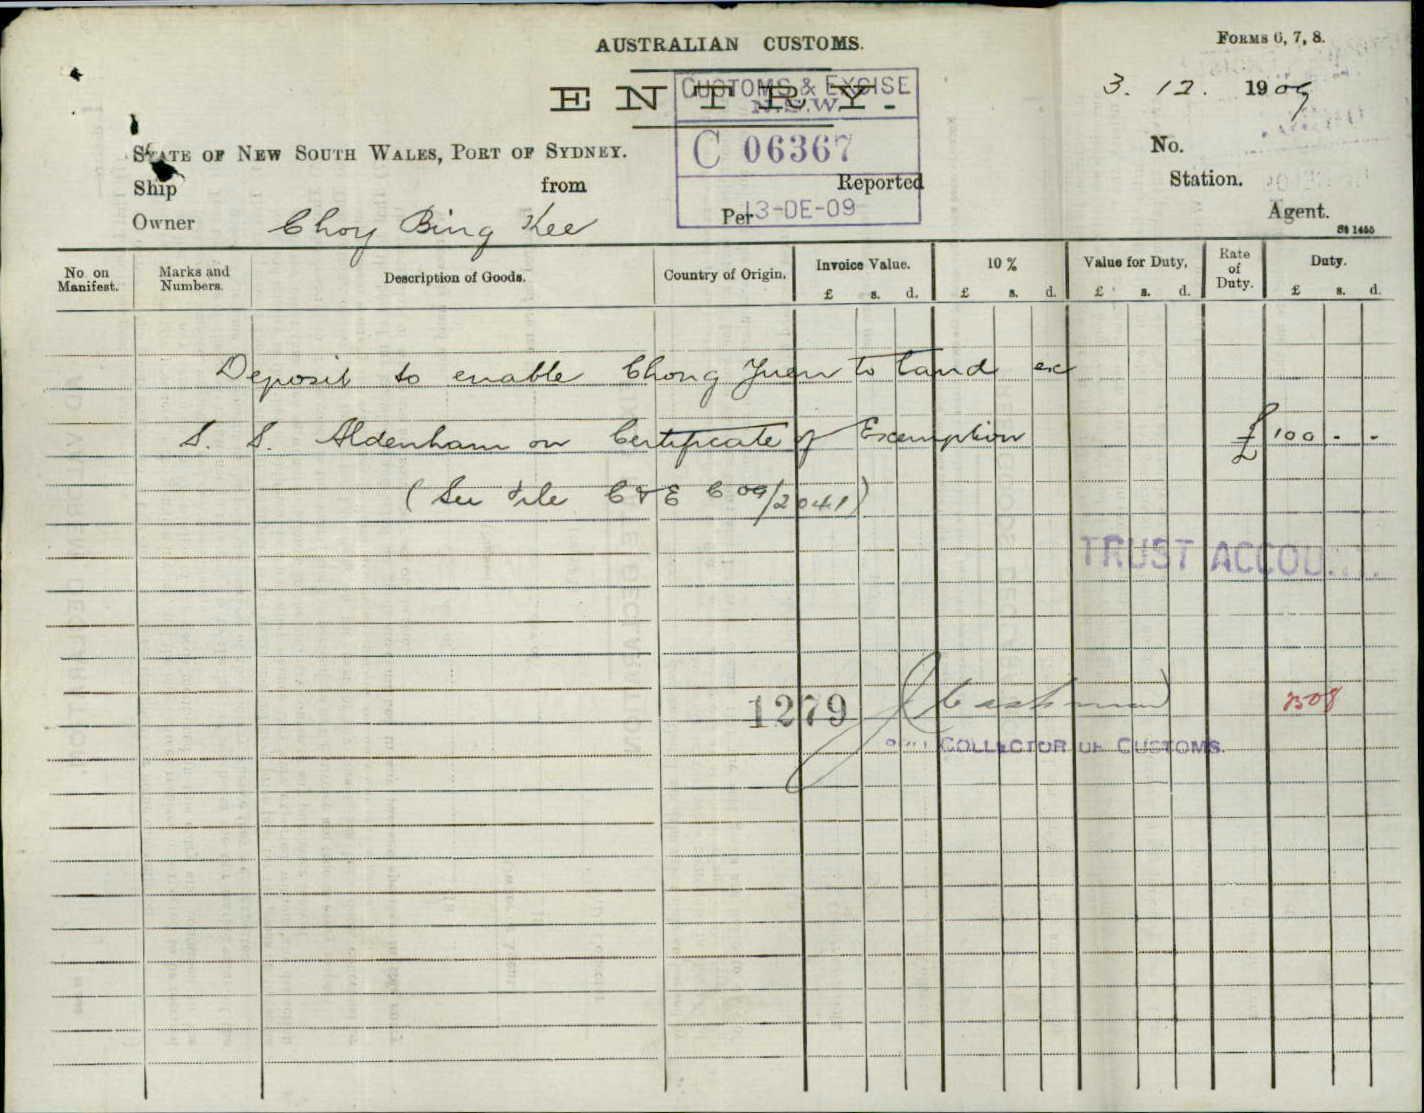 AUSTRALIAN CUSTOMS.
FORMS 6, 7, 8.
ENTRY.
3. 12. 1909
CUSTOMS & EXCISE
N.S.W.
C 06367
13-DE-09
STATE OF NEW SOUTH WALES, PORT OF SYDNEY.
No.
Ship from Reported Station.
Owner Choy Bing Kee Per Agent.
St 1455
No. on Manifest. Marks and Numbers. Description of Goods. Country of Origin. Invoice Value. 10 % Value for Duty. Rate of Duty. Duty.
£ s. d. £ s. d. £ s. d. £ s. d.
Deposit to enable Chong Yuen to land ex
S. S. Aldenham on Certificate of Exemption £ 100 - -
(See File C & E C 09/2041)
TRUST ACCOU
1279
COLLECTOR OF CUSTOMS.